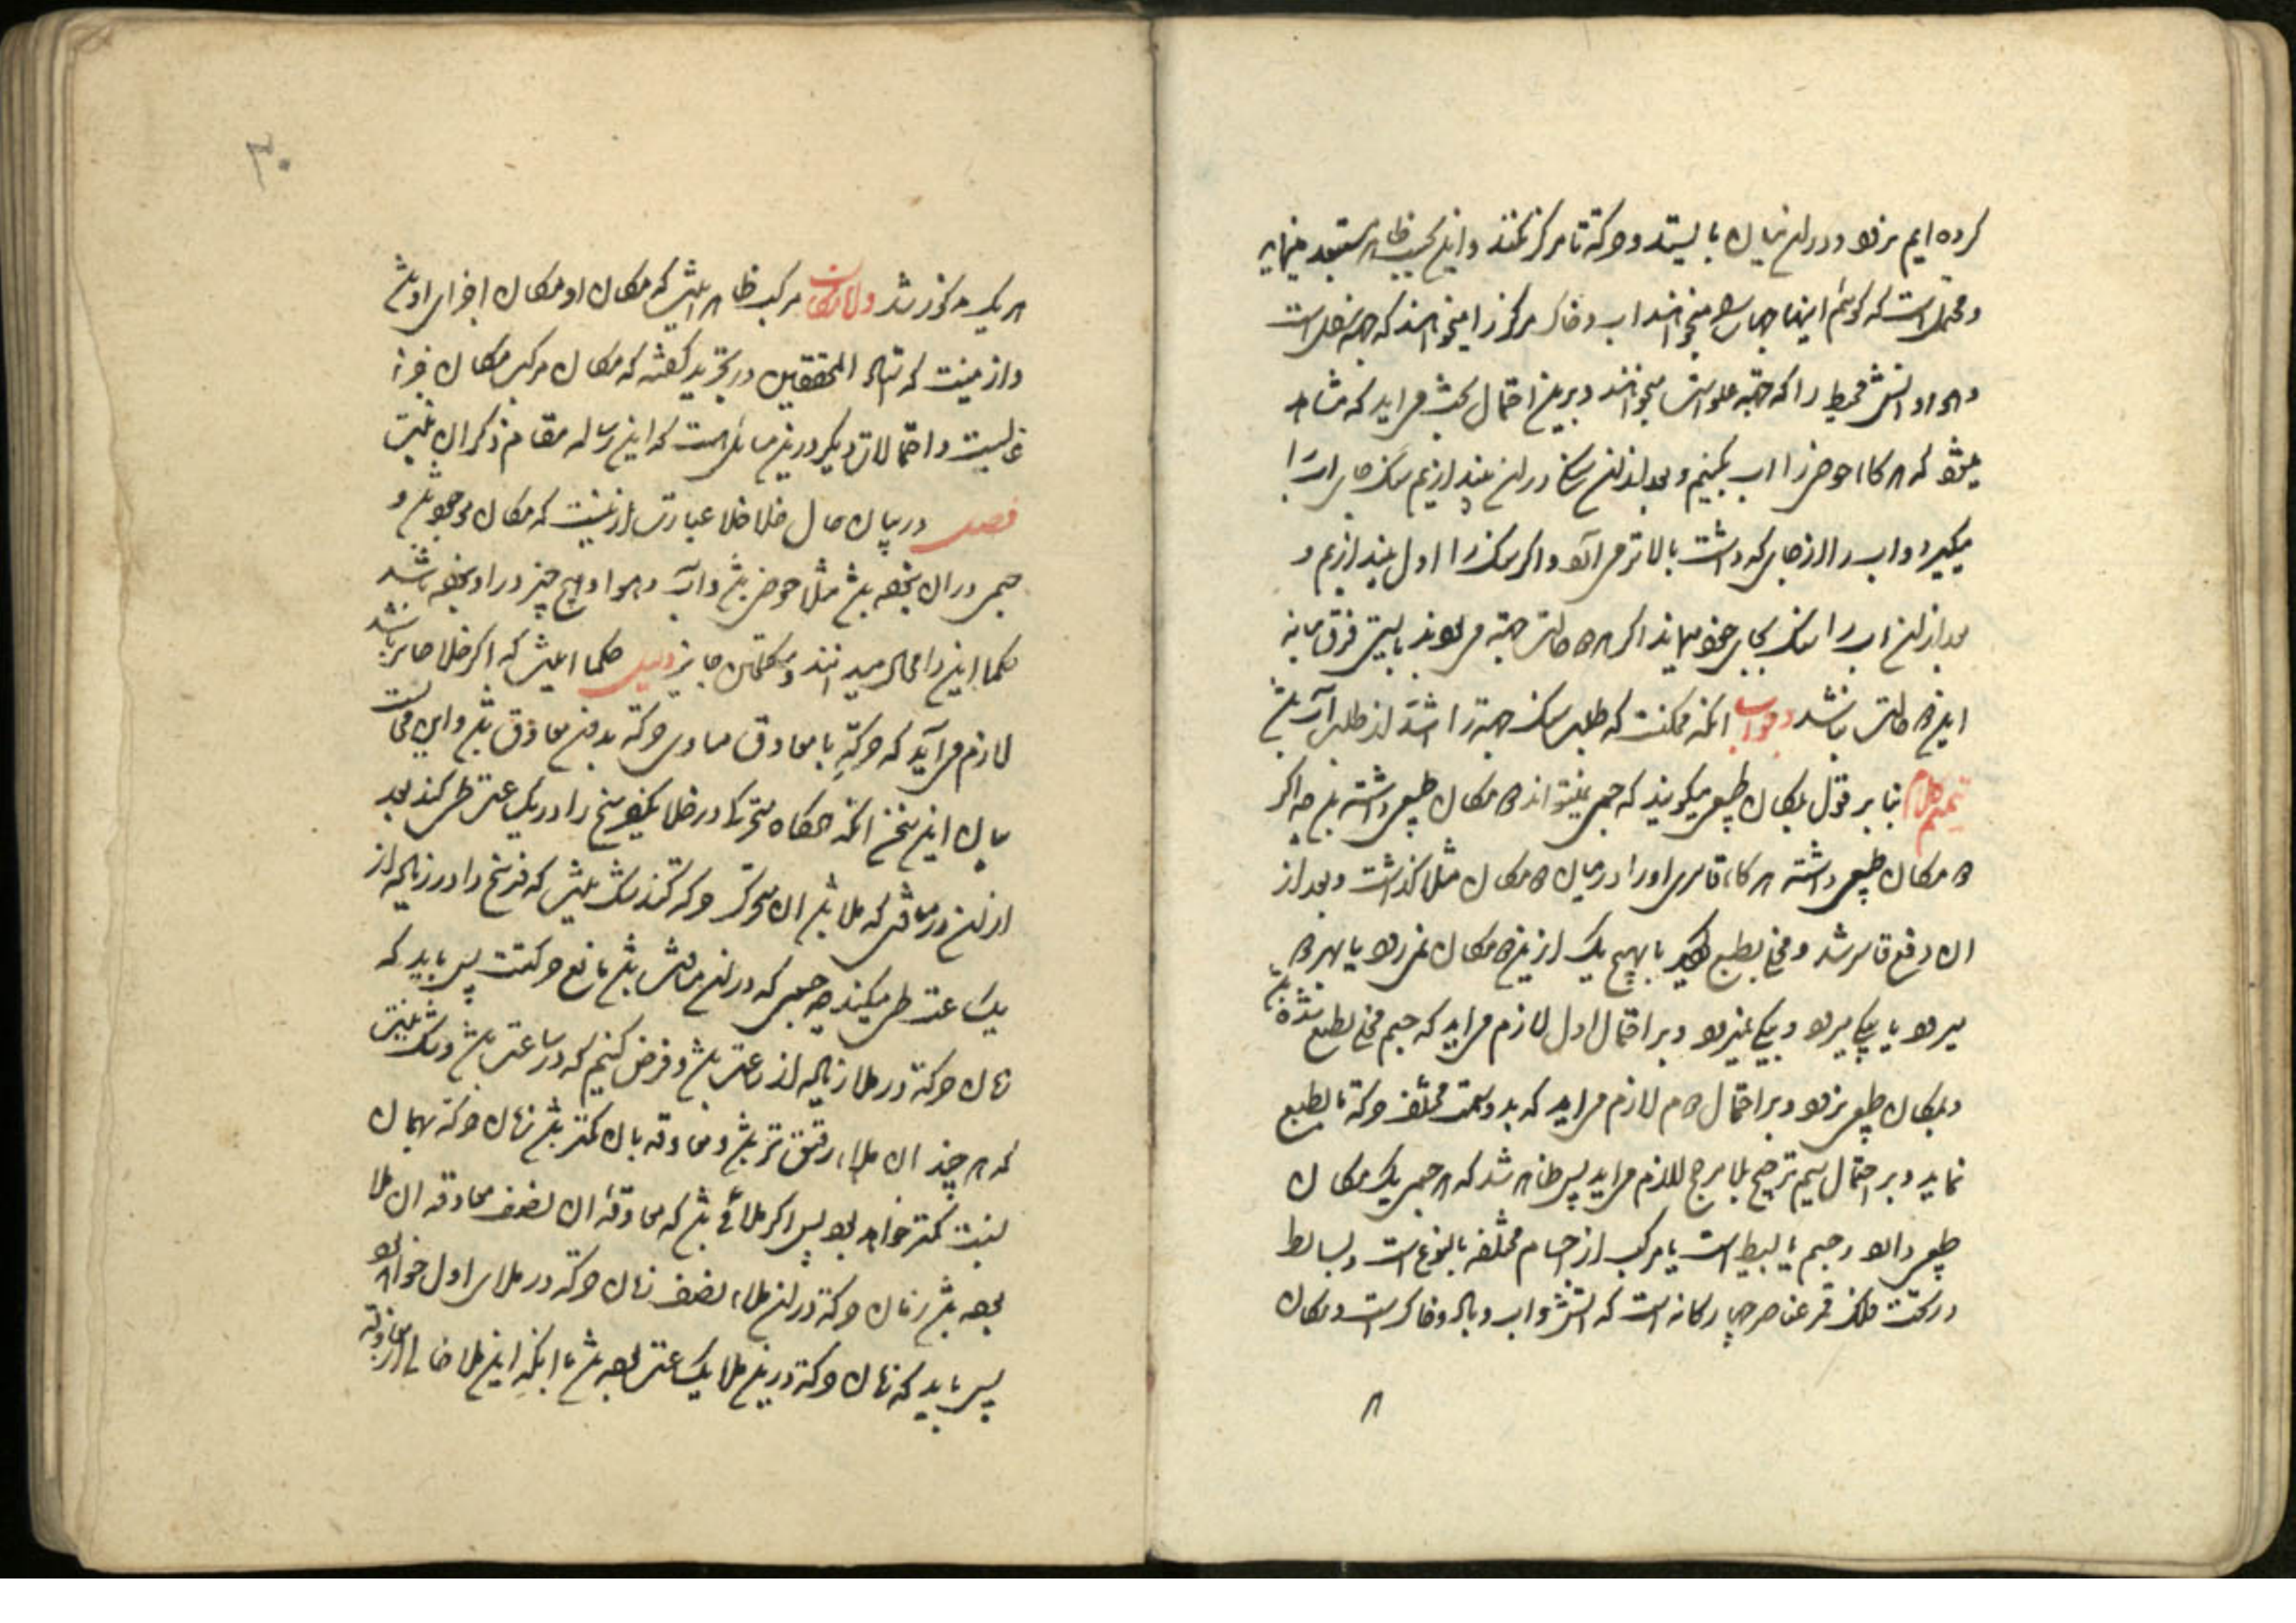 کرده ایم نرود و در ان میان بایستد و حرکة تا مرکز نکند و این بحسب ظاهر مستبعد مینماید
و محتمل است که گوئیم اینها جهات را میخواهند اب و خاک مرکز را میخواهند که جهة سفل است
و هوا و اتش محیط را که جهة علو است میخواهند و برین احتمال بحث میاید که مشاهد
میشود که هرگاه حوض را اب بکنیم و بعد از ان سنگ در ان بیندازیم سنگ جای اب را
میگیرد و اب را از جایی که داشت بالاتر می آورد و اگر سنگ را اول بیندازیم و
بعد از ان اب را سنگ بجای خود میماند اگر هر دو طالب جهة میبودند بایستی فرق میانه
این دو حالت نباشد وجواب انکه ممکنست که طلب سنگ جهة را اشد از طلب آب باشد
تتمیم کلام بنا بر قول بمکان طبیعی میگویند که جسم نمیتواند دو مکان طبیعی داشته باشد چه اگر
دو مکان طبیعی داشته هرگاه قاسری او را در میان دو مکان مثلا گذاشت و بعد از
ان رفع قاسر شد و مخلی بطبع گردید یا بهیچ یک ازین دو مکان نمیرود یا بهر دو
میرود یا بیکی میرود و بیکی نمیرود و بر احتمال اول لازم میاید که جسم مخلی بطبع شده باشد
و بمکان طبیعی نرود و بر احتمال دوم لازم میاید که بدو سمت مختلف حرکة بالطبع
نماید و بر احتمال سیم ترجیح بلا مرجح لازم میاید پس ظاهر شد که هر جسم یک مکان
طبیعی دارد و جسم یا بسیط است یا مرکب از اجسام مختلفه بالنوع است و بسایط
در تحت فلک قمر عناصر چهارگانه است که اتش و اب و باد و خاک است و مکان
هر
۳۰
هر یک مذکور شد و اما مکان مرکب ظاهر اینست که مکان او مکان اجزای او باشد
و ازینست که المحققین در تجرید گفته که مکان مرکب مکان جزء
غالبست و احتمالات دیگر درین مسائل هست که این رساله مقام ذکر ان نیست
فصل در بیان حال خلا خلا عبارت ازینست که مکان موجود باشد و
جسمی در ان نبوده باشد مثلا حوض باشد و آب و هوا و هیچ چیز در او نبوده باشد
حکما این را محال میدانند و متکلمان جایز دلیل حکما اینست که اگر خلا جایز باشد
لازم می آید که حرکة با معاوق مساوی حرکة بدون معاوق باشد و این محالست
بیان این سخن انکه هرگاه متحرکی در خلا یکفرسخ را در یک ساعت طی کند بعد
از ان در مسافتی که ملا باشد ان متحرک حرکة کند شک نیست که فرسخ را در زیاده از
یک ساعت طی میکند چه جسمی که در ان مسافت باشد مانع حرکتست پس باید که
زمان حرکة در ملا زیاده از ساعتی باشد و فرض کنیم که دو ساعت باشد و شک نیست
که هر چند ان ملاء رقیق تر باشد و معاوقه با ان کمتر باشد زمان حرکة بهمان
نسبت کمتر خواهد بود پس اگر ملائی باشد که معاوقه ان نصف معاوقه ان ملا
بوده باشد زمان حرکة در ان ملاء نصف زمان حرکة در ملای اول خواهد بود
پس باید که زمان حرکة درین ملا یک ساعت بوده باشد با انکه این ملا خالی از معاوقه